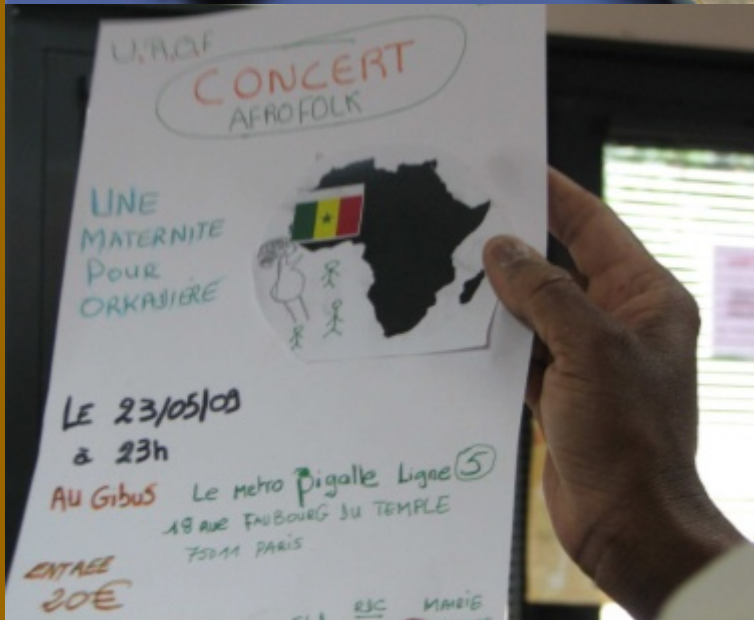 U.R.A.F
CONCERT
AFROFOLK
UNE
MATERNITE
POUR
ORKADIERE
LE 23/05/09
à 23h
AU Gibus Le Metro Pigalle Ligne 5
18 rue FAUBOURG DU TEMPLE
75011 PARIS
ENTREE
20€
RBC MAIRIE